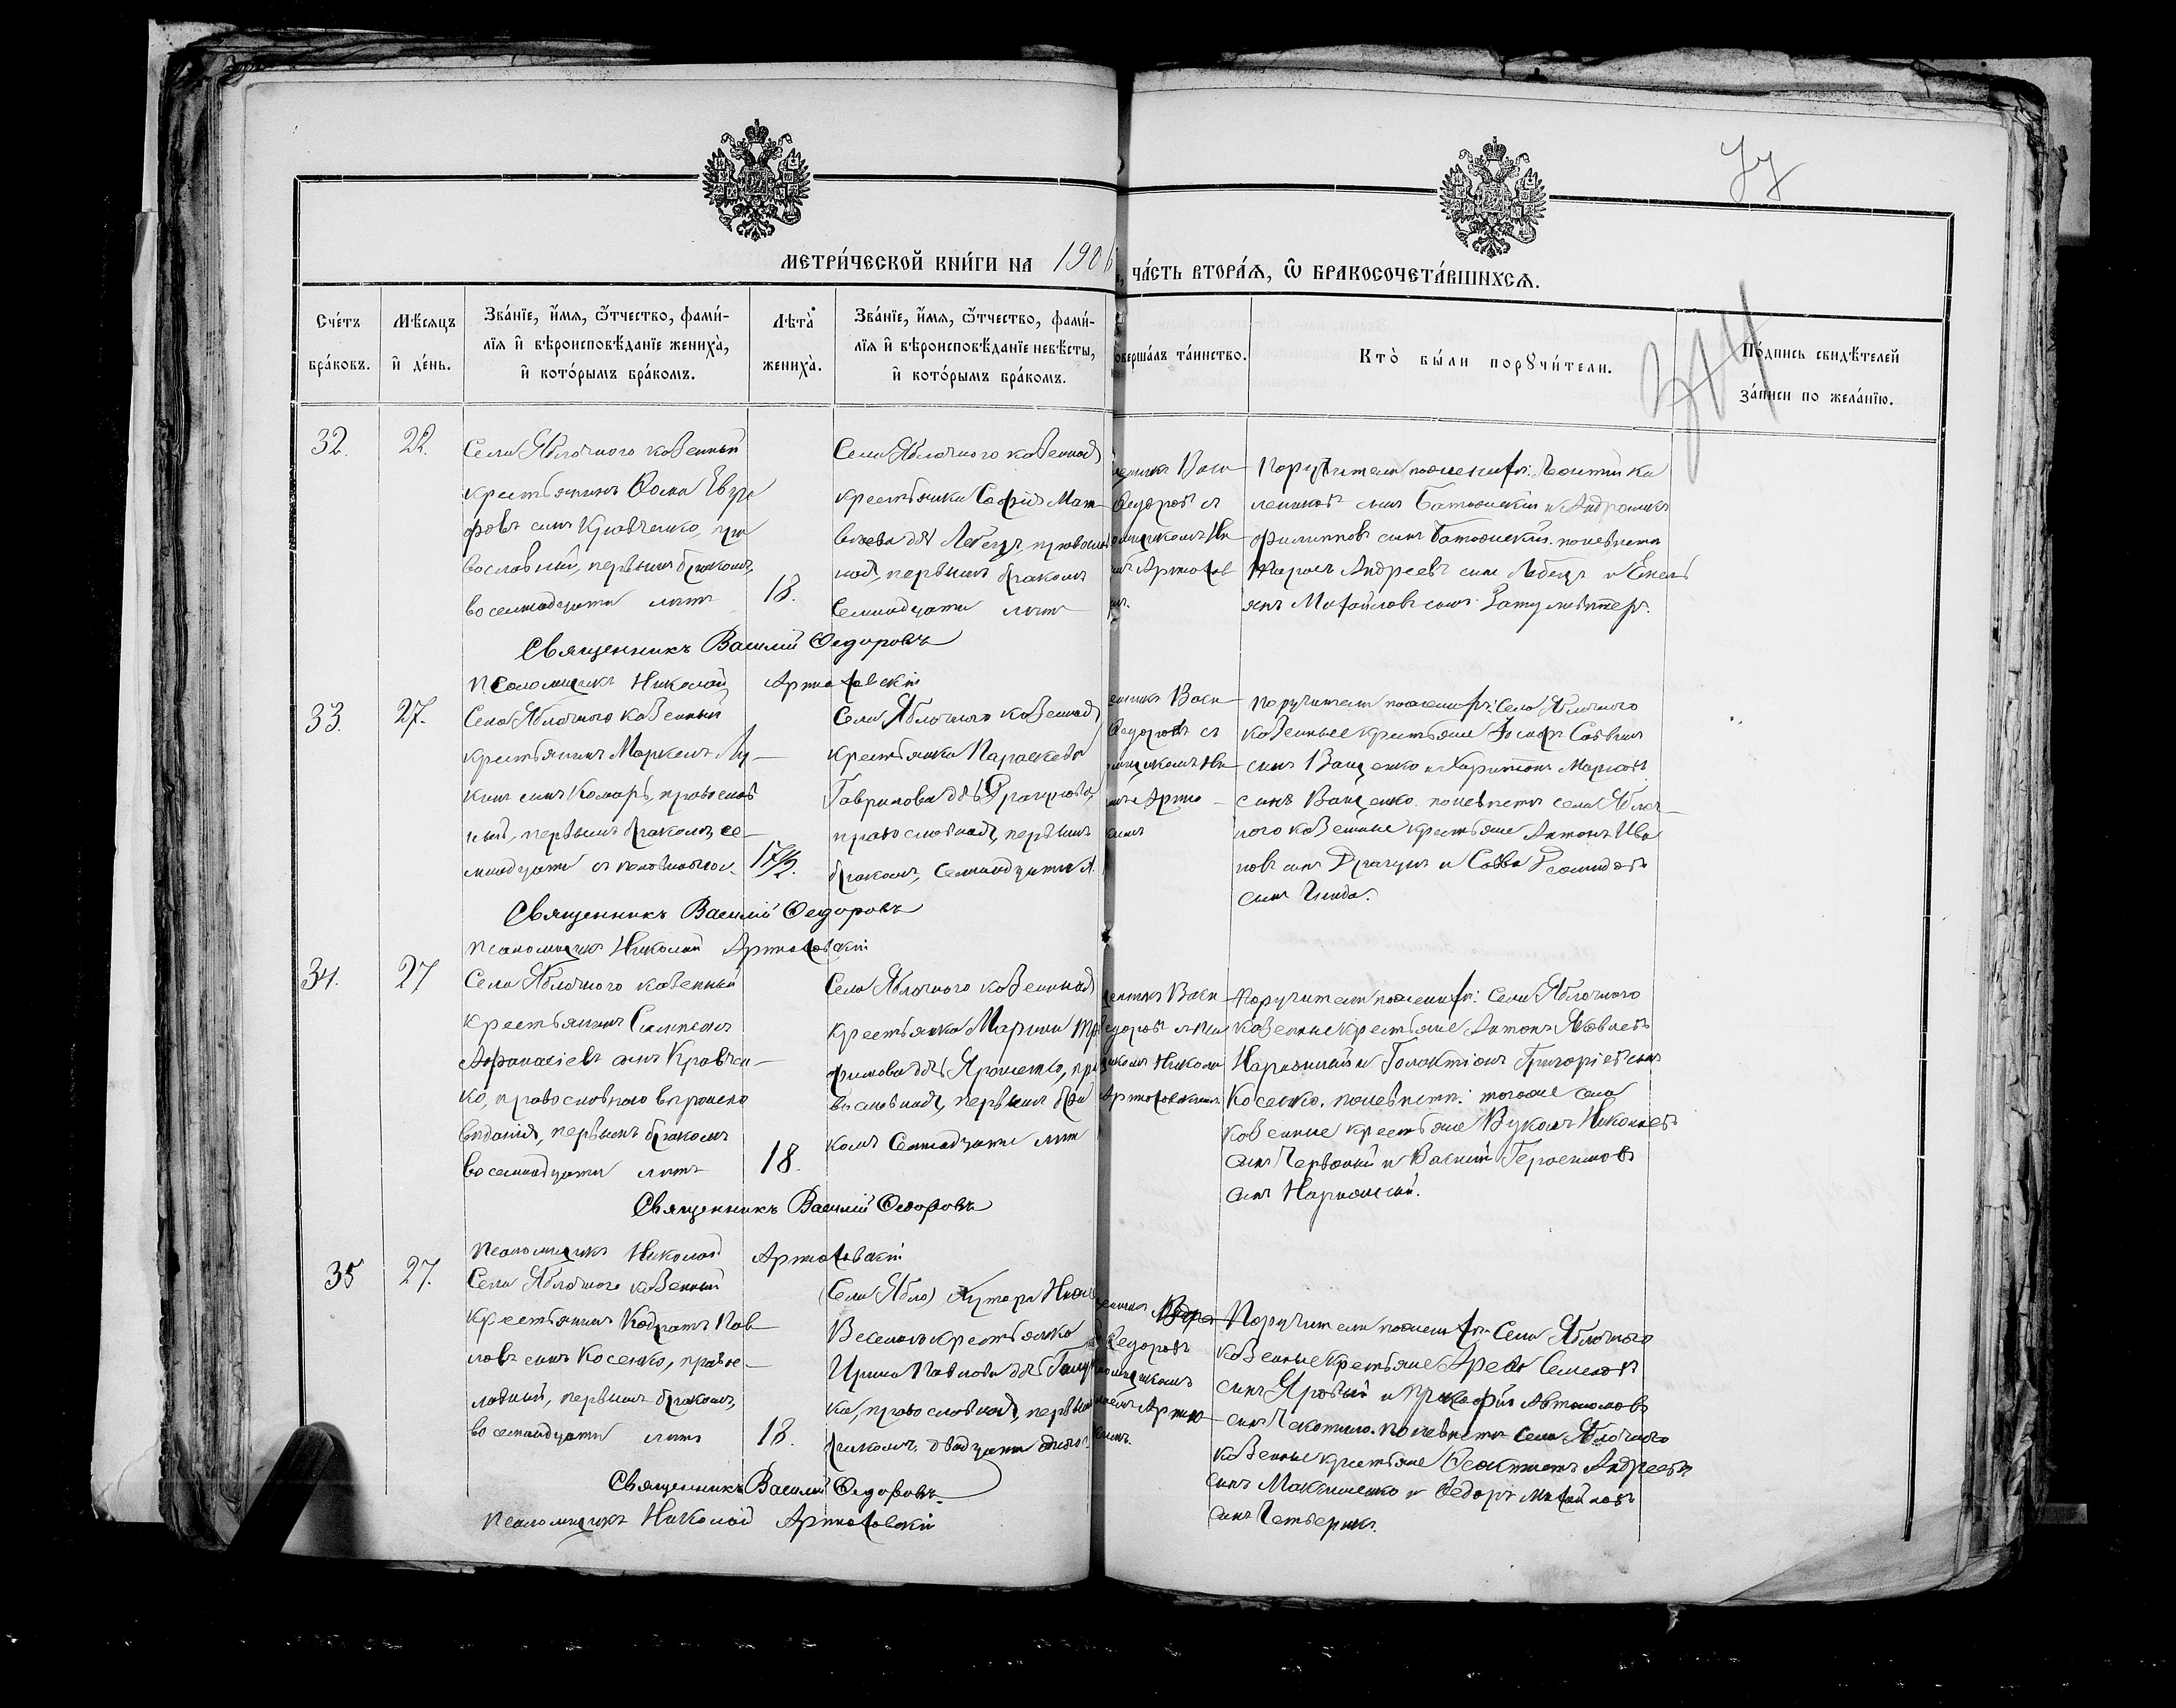 МЕТРИ́ЧЕСКОЙ КНИ́ГИ НА 1906
, ЧА́СТЬ ВТОРА́Ѧ, Ѽ БРАКОСОЧЕТА́ВШИХСѦ.
Сче́тъ бра́ковъ.
Мѣ́сяцъ и҆ де́нь.
Зва́нїе, и҆́мѧ, ѻ҆́тчество, фами́-
лїѧ и҆ вѣроисповѣ́данїе жениха̀,
и҆ кото́рымъ бра́комъ.
Лѣта̀
жениха̀.
Зва́нїе, и҆́мѧ, ѻ҆́тчество, фами́-
лїѧ и҆ вѣроисповѣ́данїе невѣ́сты,
и҆ кото́рымъ бра́комъ.
оверша́лъ та́инство.
Кто̀ бы́ли порꙋчи́тели.
По́дпись свидѣ́телей
за́писи по жела́нїю.
32.
22.
Села Яблочного казенный
крестьянинъ Фома Евгра
фовъ сынъ Кравченко, пра
вославный, первымъ бракомъ,
восемнадцати лѣтъ
18.
Села Яблочного казенная
крестьянка Софія Мат
вѣева дч Лебедь, православ
ная, первымъ бракомъ
Семнадцати лѣтъ
щенникъ Васи
Федоровъ съ
ломщикомъ Ни
Артюхов
Поручители по женихѣ:
сынъ и Андроникъ
Филипповъ сынъ по невѣстѣ
Андреевъ сынъ Лебедь и Емель
янъ Михайловъ сынъ
Священникъ Василій Федоровъ
Псаломщикъ Николай Артюховскій
33.
27.
Села Яблочного казенный
крестьянинъ Маркелъ Лу-
кинъ сынъ Комаръ, православ
ный, первымъ бракомъ, се-
мнадцати съ половиною л.
17½.
Села Яблочного казенная
крестьянка Параскева
Гаврилова дч Драгунова,
православная, первымъ
бракомъ, семнадцати л.
енникъ Васи
Федоровъ съ
омщикомъ Ни
Артю
Поручители по женихѣ: села Яблочного
казенные крестьяне Іосифъ Саввинъ
сынъ Ващенко и Харитонъ Марковъ
сынъ Ващенко. по невѣстѣ села Яблоч-
ного казенные крестьяне Антонъ Ива
новъ сынъ Драгунъ и Савва
сынъ
Священникъ Василій Федоровъ
Псаломщикъ Николай Артюховскій
34.
27
Села Яблочного казенный
крестьянинъ
Афанасіевъ сынъ Кравчен-
ко, православного вѣроиспо
вѣданія, первымъ бракомъ
восемнадцати лѣтъ
18.
Села Яблочного казенная
крестьянка Марина Тро
фимова дч Ярошенко, пра
вославная, первымъ бра
комъ Семнадцати лѣтъ
енникъ Васи
Федоровъ съ Пса
щикомъ Николаи
Артюховскимъ
Поручители по женихѣ: села Яблочного
казенные крестьяне Антонъ Яковлевъ
Нарожный и Галактіонъ Григоріевъ сынъ
Косенко. по невѣстѣ: тогоже села
казенные крестьяне Вуколъ
сынъ Червоный и Василій Герасимовъ
сынъ Нарожный.
Священникъ Василій Федоровъ
Псаломщикъ Николай Артюховскій
35
27.
Села Яблочного казенный
крестьянинъ Кодратъ Пав
ловъ сынъ Косенко, правос-
лавный, первымъ бракомъ,
восемнадцати лѣтъ
18.
(Села Ябло) Хутора
крестьянка
Ирина Павлова дч
ка, православная, первымъ
бракомъ, двадцати одного
Федоровъ
ломщикомъ
Артю
Поручители по женихѣ: Села Яблочного
казенные крестьяне Семеновъ
сынъ Яровый и Прокофій Автономовъ
сынъ Чекотило. по невѣстѣ Села Яблочного
казенные крестьяне Феоктистъ Андреевъ
сынъ Максименко и Федоръ Михайловъ
сынъ Четверикъ.
Священникъ Василій Федоровъ
Псаломщикъ Николай Артюховскій